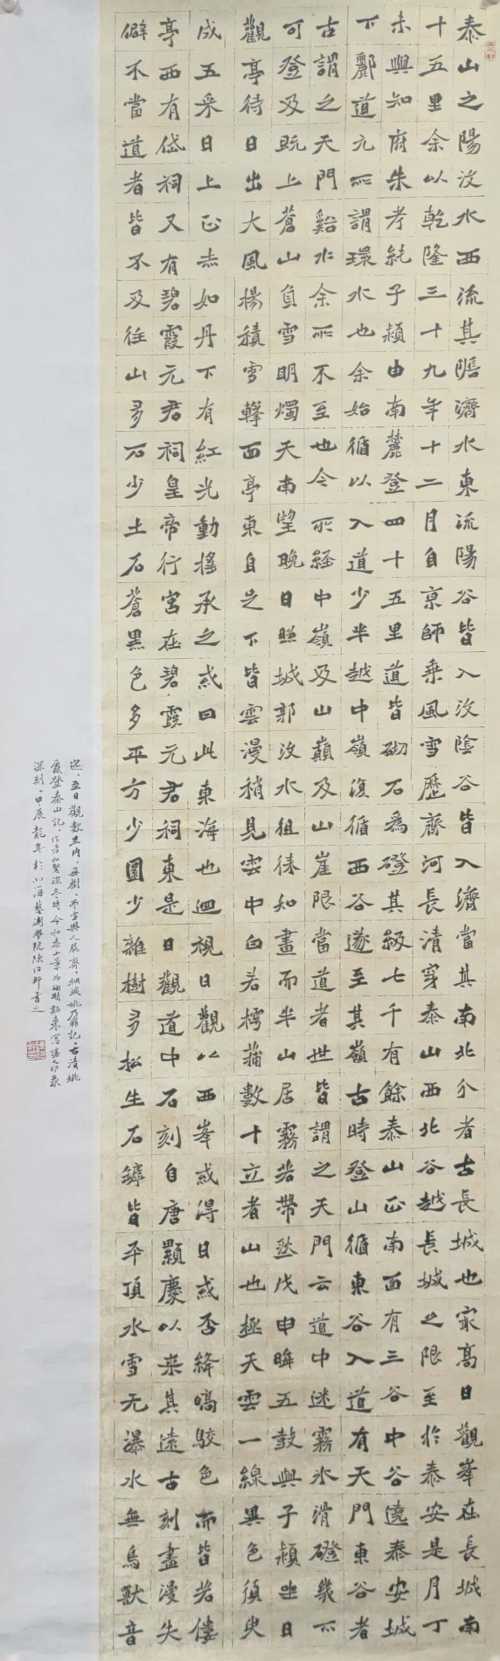 泰山之陽汶水西流其陰濟水東流陽谷皆入汶陰谷皆入濟當其南北分者古長城也最高日觀峯在長城南
十五里余以乾隆三十九年十二月自京師乘風雪歷齊河長清穿泰山西北谷越長城之限至於泰安是月丁
未與知府朱孝純子潁由南麓登四十五里道皆砌石為磴其級七千有餘泰山正南面有三谷中谷遶泰安城
下酈道元所謂環水也余始循以入道少半越中嶺復循西谷遂至其嶺古時登山循東谷入道有天門東谷者
古謂之天門谿水余所不至也今所經中嶺及山巔及山崖限當道者世皆謂之天門云道中迷霧冰滑磴幾不
可登及既上蒼山負雪明燭天南望晚日照城郭汶水徂徠如畫而半山居霧若帶然戊申晦五鼓與子潁坐日
觀亭待日出大風揚積雪擊面亭東自足下皆雲漫稍見雲中白若樗蒱數十立者山也極天雲一線異色須臾
成五采日上正赤如丹下有紅光動搖承之或曰此東海也迴視日觀以西峯或得日或否絳皜駁色而皆若僂
亭西有岱祠又有碧霞元君祠皇帝行宮在碧霞元君祠東是日觀道中石刻自唐顯慶以來其遠古刻盡漫失
僻不當道者皆不及往山多石少土石蒼黑色多平方少圜少雜樹多松生石罅皆平頂冰雪无瀑水無鳥獸音
至日觀數里內無樹而雪與人膝齊桐城姚鼐記古清姚
鼐登泰山記
深刻甲辰龍年於上海書之